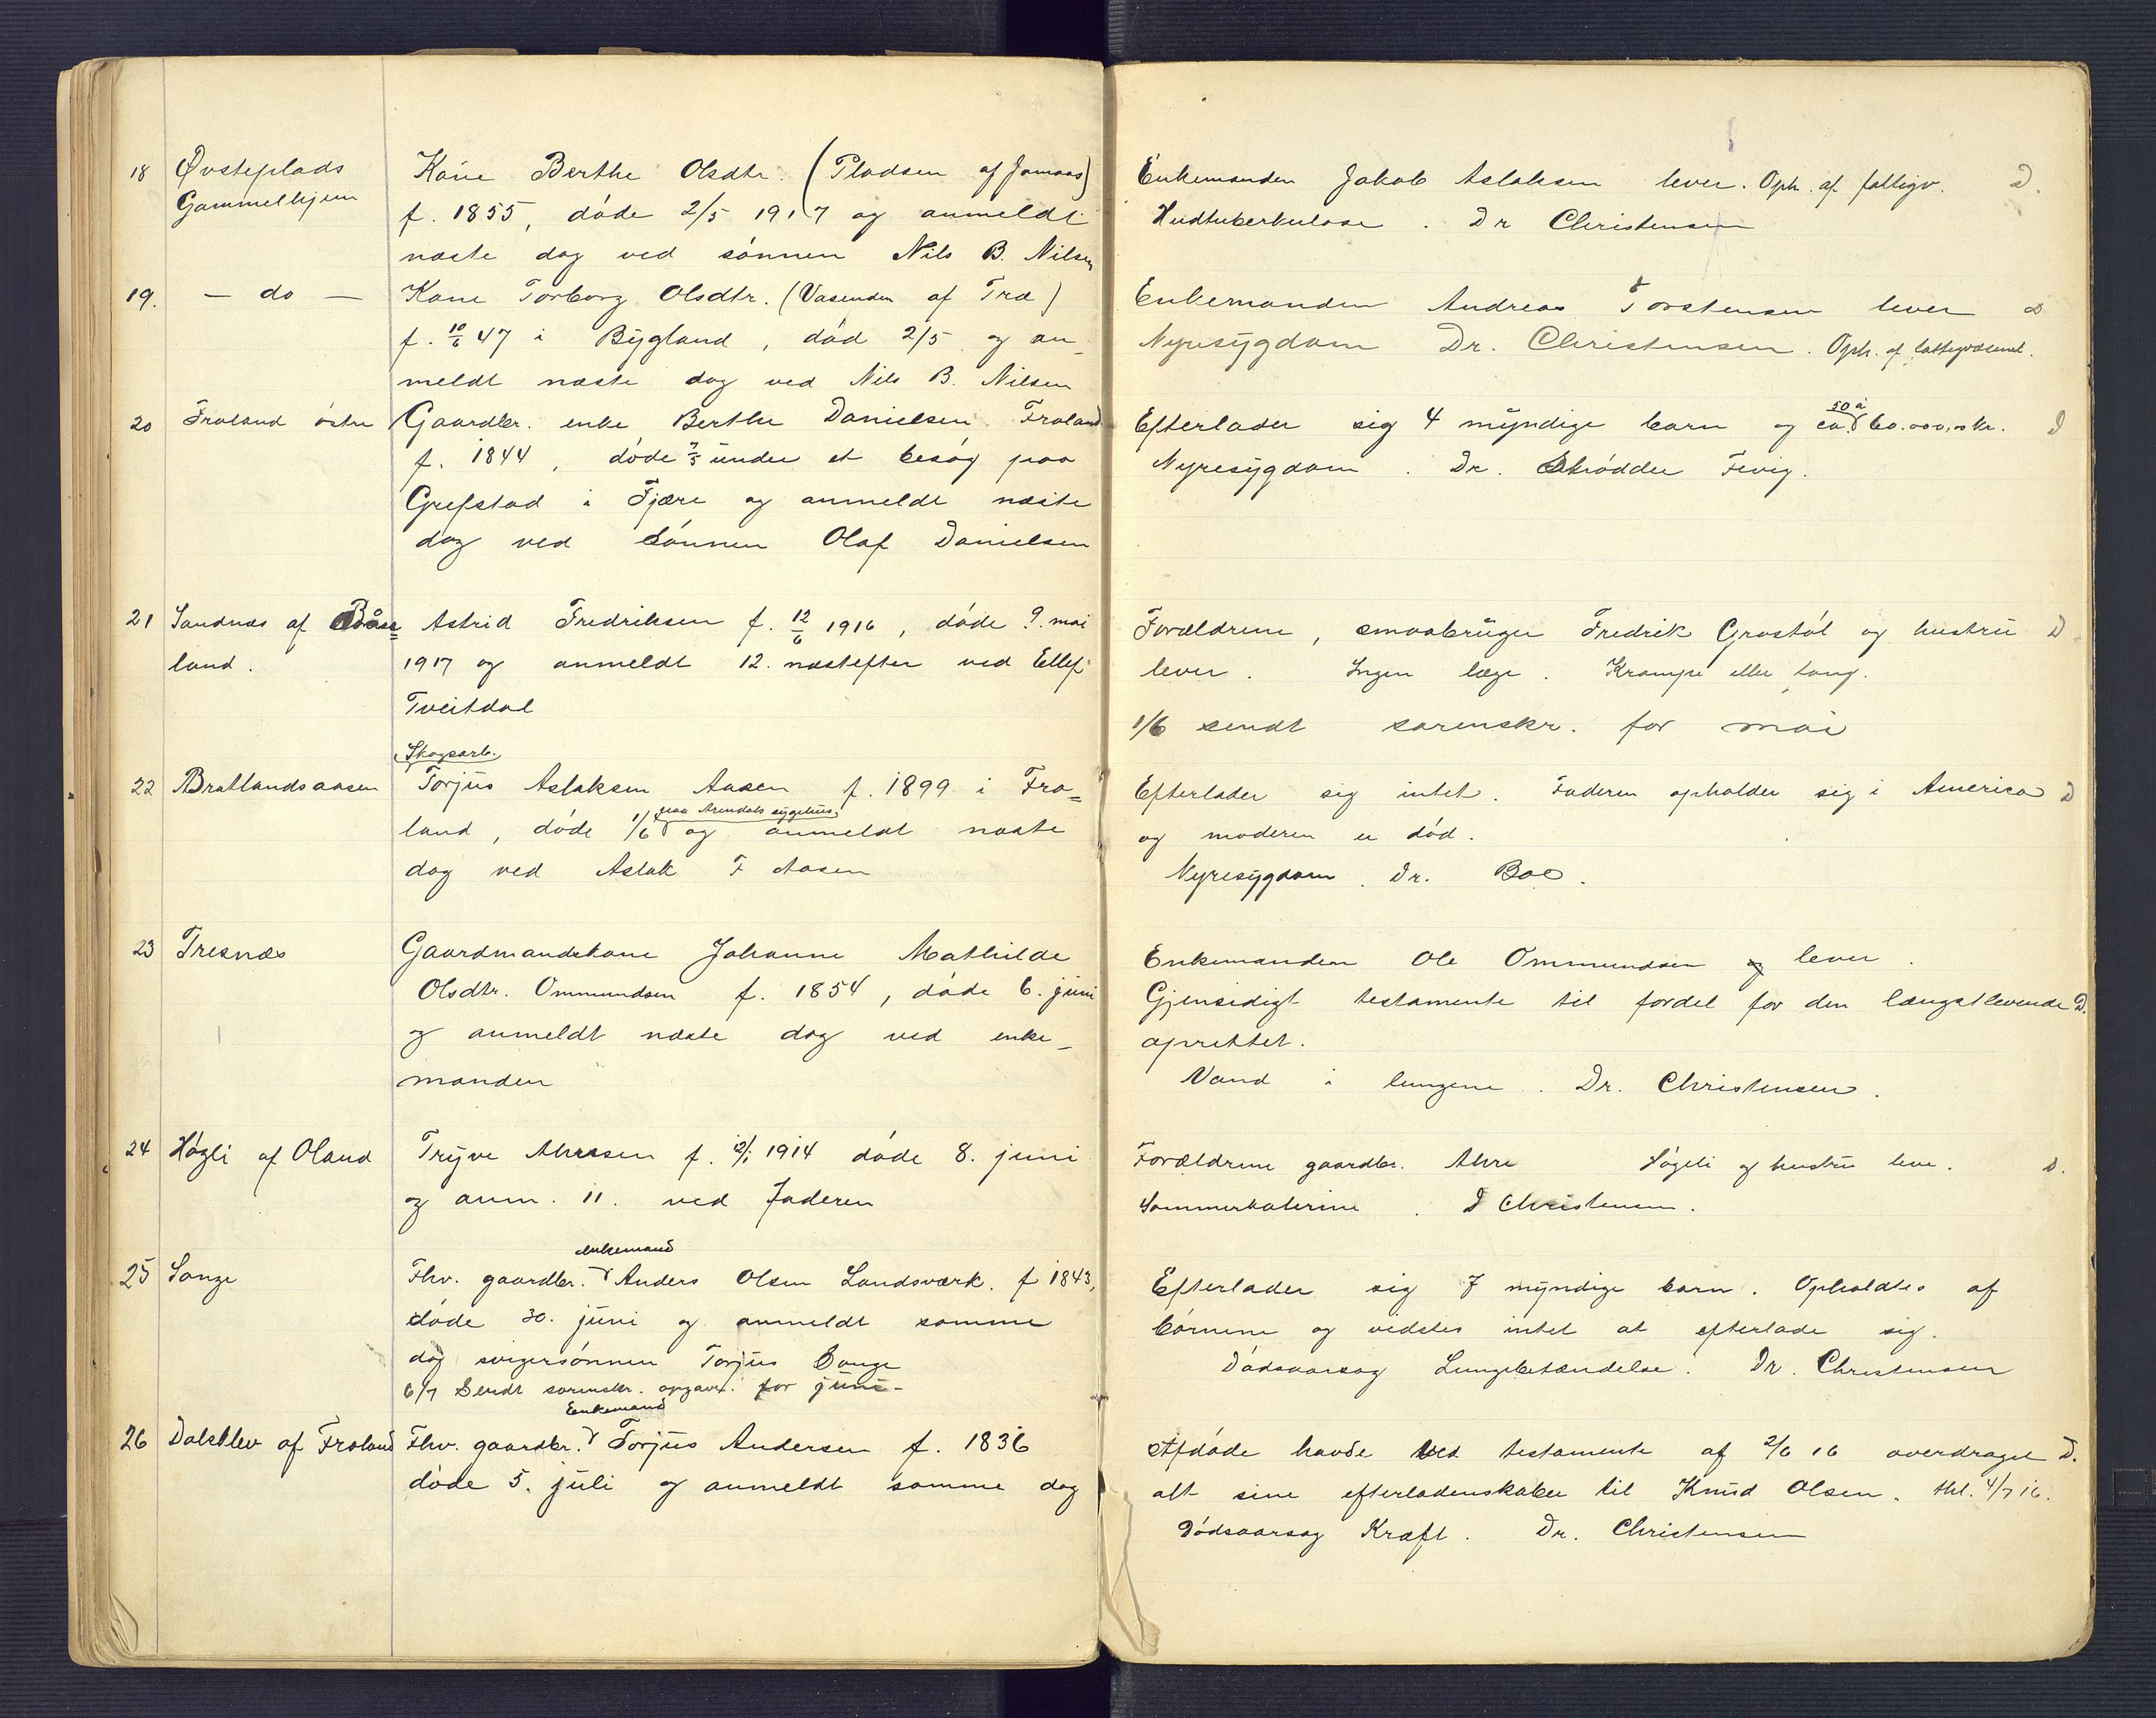 18 Øvsteplads Kone Berthe Olsdtr. (Pladsen af Jomaas)
Gammelhjem f. 1855, døde 2/5 1917 og anmeldt
næste dag ved sønnen Nils B. Nilsen
19. — do — Kone Torborg Olsdtr. (Vasenden af Træ)
f. 10/6 47 i Bygland, død 2/5 og an-
meldt næste dag ved Nils B. Nilsen
20 Froland østre Gaardbr. enke Berthe Danielsen Froland
f. 1844, døde 7/5 under et besøg paa
Grefstad i Fjære og anmeldt næste
dag ved Sønnen Olaf Danielsen
21 Sandnæs af Båse= Astrid Fredriksen f. 12/6 1916, døde 9. mai
land. 1917 og anmeldt 12. næstefter ved Ellef
Tveitdal
Skogsarb.
22 Bratlandsaasen Torjus Aslaksen Aasen f. 1899 i Fro=
paa Arendals sygehus
land, døde 1/6 og anmeldt næste
dag ved Aslak F Aasen
23 Tresnæs Gaardmandskone Johanne Mathilde
Olsdtr. Ommundsen f. 1854, døde 6. juni
og anmeldt næste dag ved enke-
manden
24 Høgli af Oland Trygve Ahresen f. 12/1 1914 døde 8. juni
og anm. 11. ved Faderen
enkemand
25 Songe Fhv. gaardbr. Anders Olsen Landsværk. f 1843,
døde 30. juni og anmeldt samme
dag svigersønnen Torjus Songe
6/7 Sendt sorenskr. opgave. for juni-
Enkemand
26 Dalsklev af Froland Fhv. gaardbr. Torjus Andersen f. 1836
døde 5. juli og anmeldt samme dag
Enkemanden Jakob Aslaksen lever. Oph. af fattigv. D.
Hudtuberkulose. Dr Christensen
Enkemanden Andreas Torstensen lever D
Nyresygdom Dr. Christensen. Oph. af fattigvæsenet.
50 à
Efterlader sig 4 myndige barn og ca. 60.000,00 kr. D
Nyresygdom. Dr. Skrødder Fevig.
Forældrene, smaabruger Fredrik Grostøl og hustru D
lever. Ingen læge. Krampe eller tang.
1/6 sendt sorenskr. for mai
Efterlader sig intet. Faderen opholder sig i America D
og moderen er død.
Nyresygdom. Dr. Boe.
Enkemanden Ole Ommundsen og lever.
Gjensidigt testamente til fordel for den længstlevende D.
oprettet.
Vand i lungene. Dr. Christensen.
Forældrene gaardbr. Ahre Høgeli og hustru leve. D.
Sommerkolerine. D Christensen.
Efterlader sig 7 myndige barn. Opholdtes af
børnene og vidstes intet at efterlade sig.
Dødsaarsag Lungebetændelse. Dr. Christensen
Afdøde havde ved testamente af 2/6 16 overdraget D.
alt sine efterladenskaber til Knud Olsen. thl. 4/7 16.
Dødsaarsag Kræft. Dr. Christensen